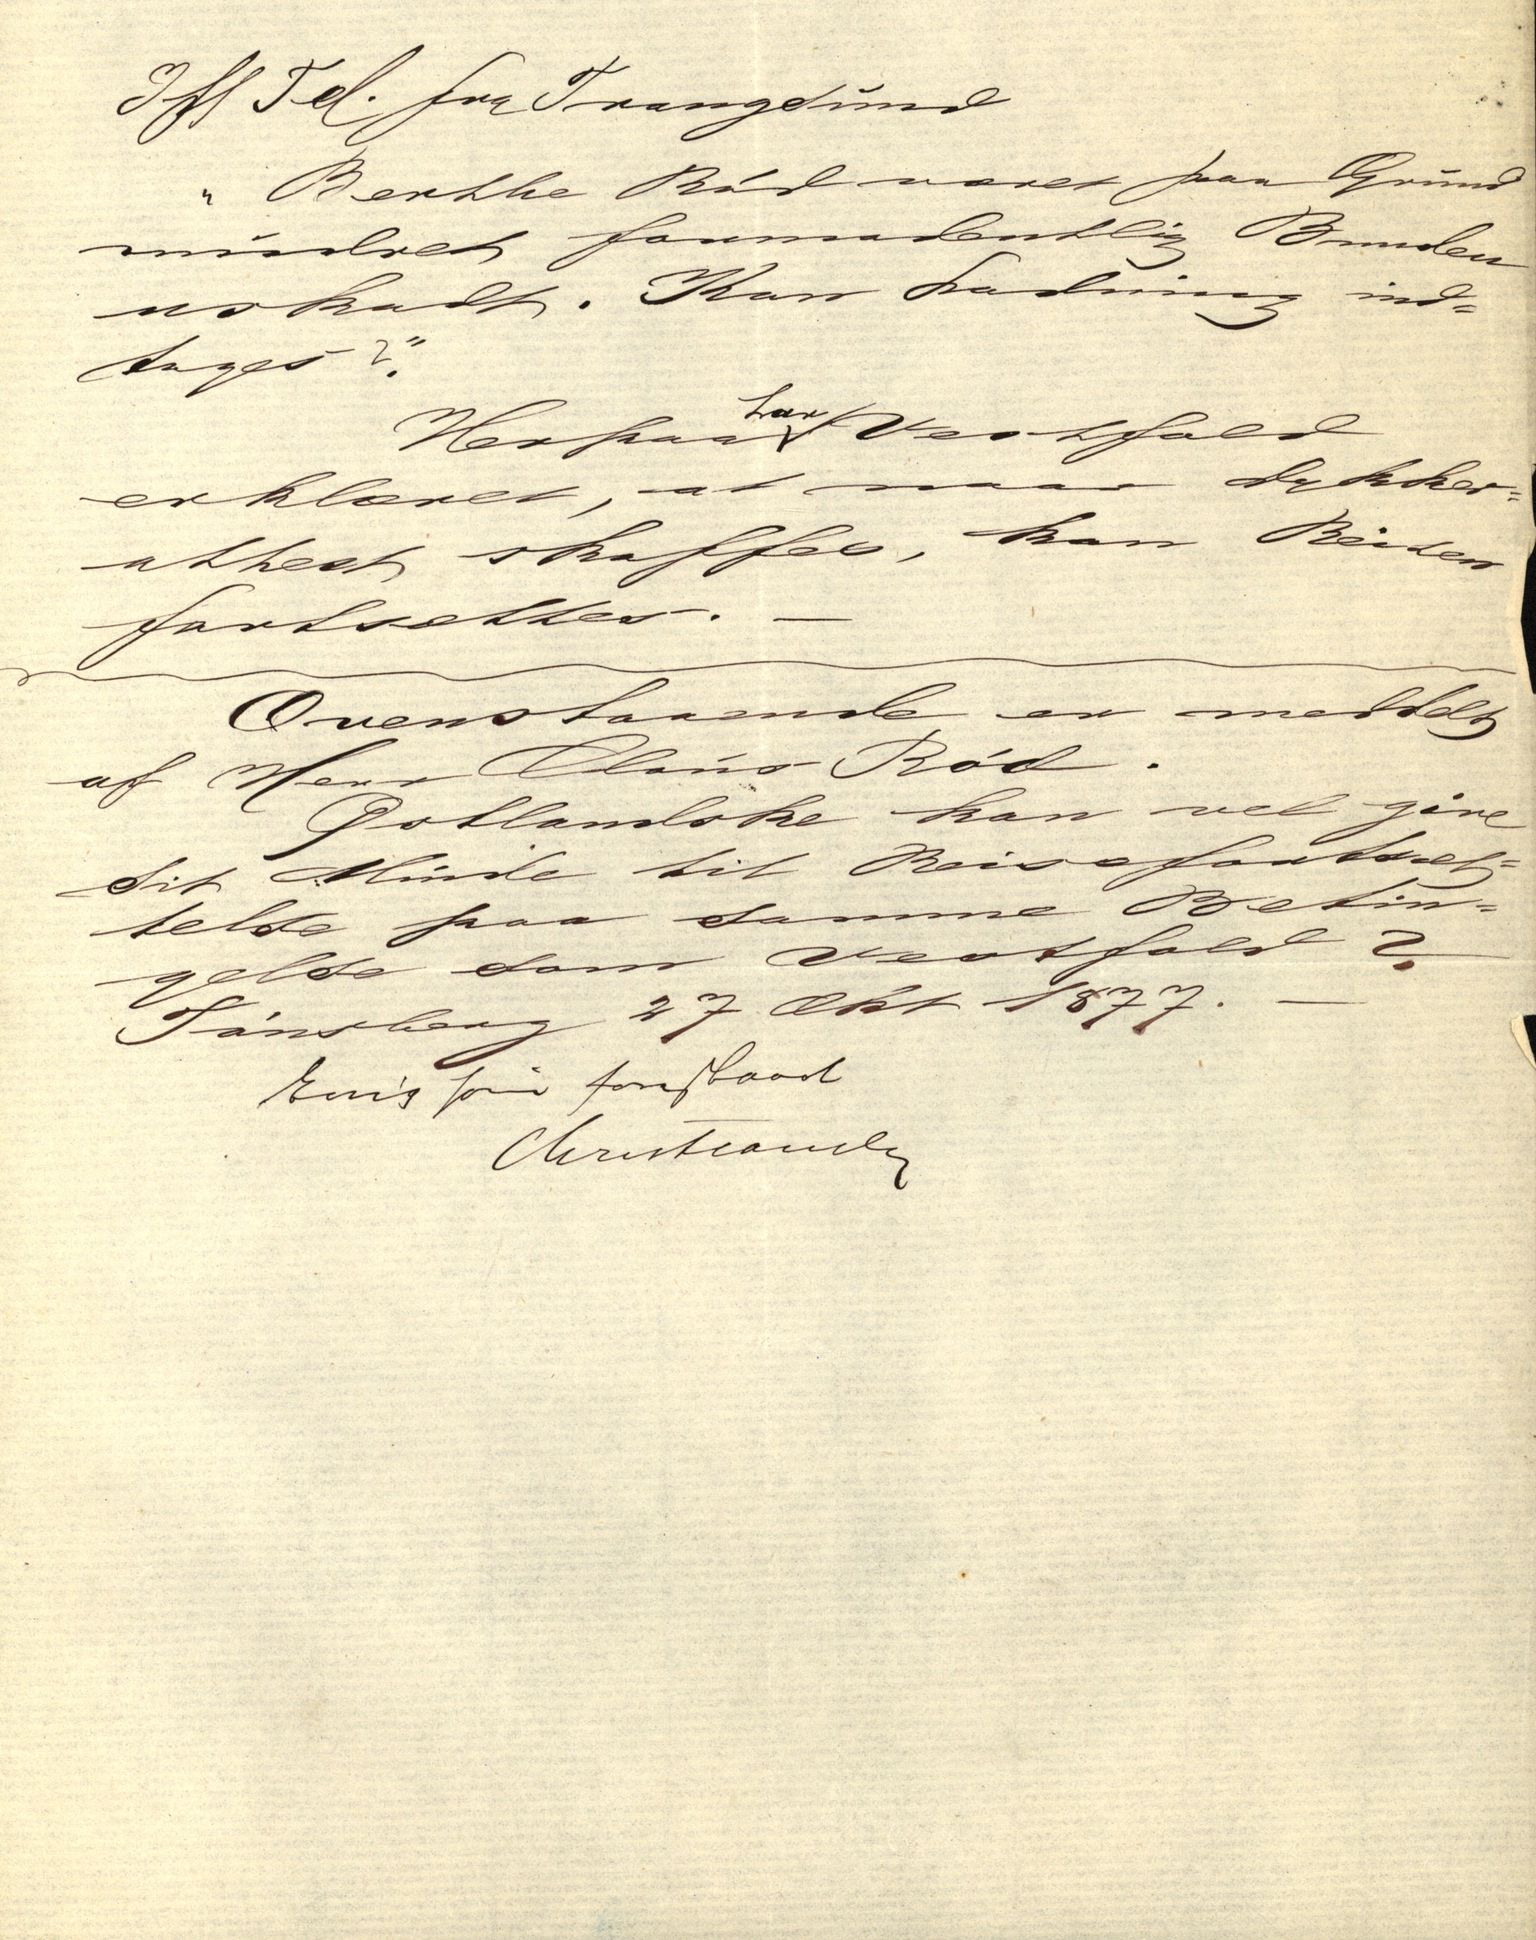 Ifl Tel. fra Trangsund
"Berthe Röd været paa Grund
mindret formodentlig Bunden
uskadt. Kan Ladning ind=
tages?"
Herpaa har Vestfold
erklæret, at naar Dykker=
attest skaffes, kan Reisen
fortsettes. —
Ovenstaaende er meddelt
af Herr Claus Röd.
Östlandske kan vel give
sit Minde til Reisefortsæt=
telse paa samme Betin=
gelse som Vestfold?
Tönsberg 27 Okt 1877. —
Enig